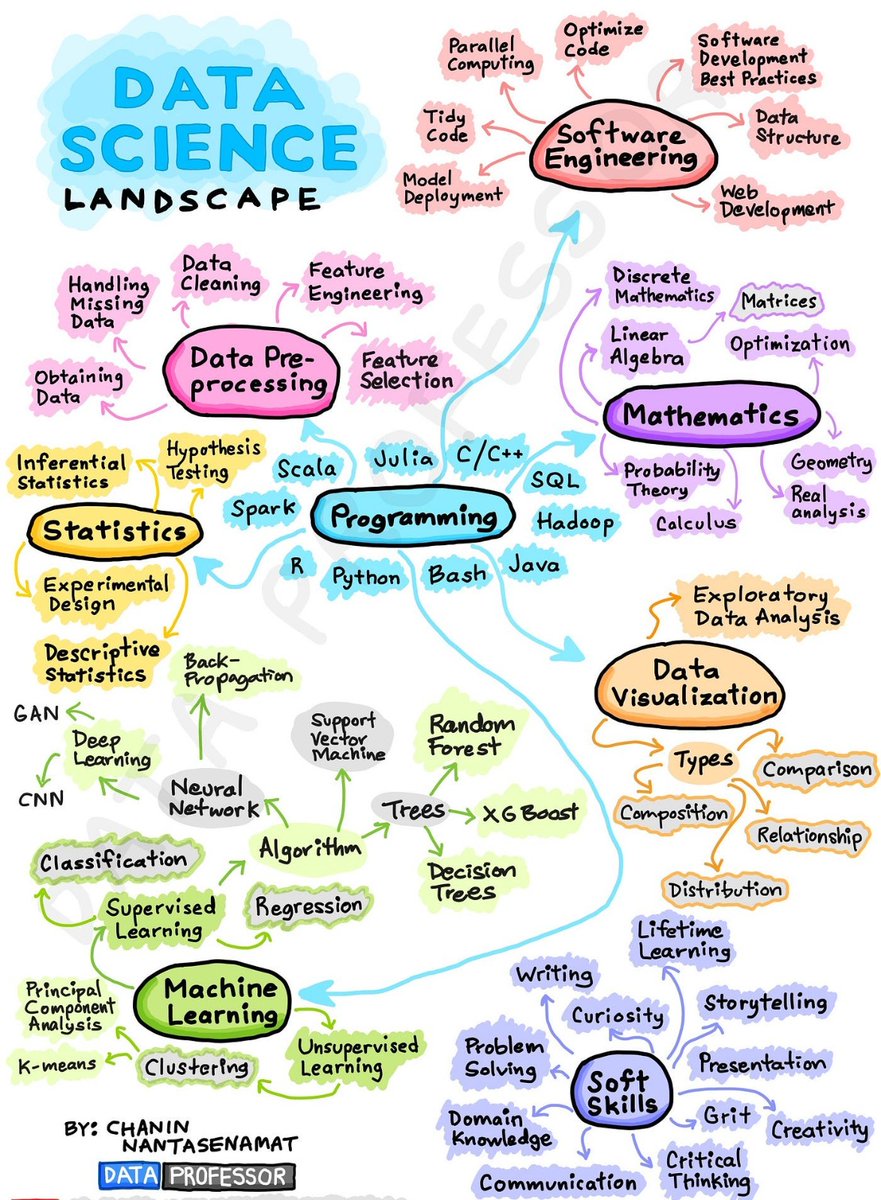 DATA
SCIENCE
LANDSCAPE
Parallel
Computing
Optimize
Code
Software
Development
Best Practices
Tidy
Code
Software
Engineering
Data
Structure
Model
Deployment
Web
Development
Handling
Missing
Data
Data
Cleaning
Feature
Engineering
Obtaining
Data
Data Pre-
processing
Feature
Selection
Discrete
Mathematics
Matrices
Linear
Algebra
Optimization
Mathematics
Probability
Theory
Calculus
Geometry
Real
analysis
Inferential
Statistics
Hypothesis
Testing
Statistics
Experimental
Design
Descriptive
Statistics
Scala
Julia
C/C++
SQL
Spark
Programming
Hadoop
R
Python
Bash
Java
Exploratory
Data Analysis
Data
Visualization
Types
Comparison
Composition
Relationship
Distribution
Back-
Propagation
GAN
Deep
Learning
CNN
Neural
Network
Support
Vector
Machine
Random
Forest
Trees
XG Boost
Algorithm
Decision
Trees
Classification
Supervised
Learning
Regression
Machine
Learning
Principal
Component
Analysis
K-means
Clustering
Unsupervised
Learning
Lifetime
Learning
Writing
Curiosity
Storytelling
Problem
Solving
Soft
Skills
Presentation
Domain
Knowledge
Grit
Creativity
Communication
Critical
Thinking
BY: CHANIN
NANTASENAMAT
DATA PROFESSOR
DATA PROFESSOR